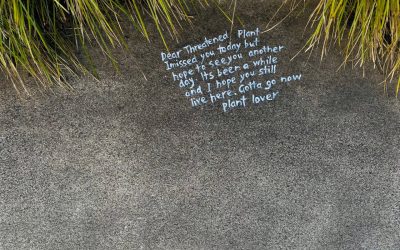 Dear Threatened Plant
I missed you today but
hope to see you another
day. It's been a while
and I hope you still
live here. Gotta go now
plant lover